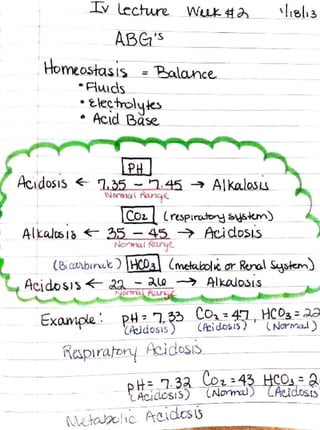 IV Lecture Week #2 1/18/13
ABG's
Homeostasis = Balance
• Fluids
• Electrolytes
• Acid Base
PH
Acidosis ← 7.35 - 7.45 → Alkalosis
Normal Range
CO2 (respiratory system)
Alkalosis ← 35 - 45 → Acidosis
Normal Range
(Bicarbinate) HCO3 (metabolic or Renal System)
Acidosis ← 22 - 26 → Alkalosis
Normal Range
Example: PH = 7.33 CO2 = 47, HCO3 = 22
(Acidosis) (Acidosis) (Normal)
Respiratory Acidosis
PH = 7.32 CO2 = 43 HCO3 = 2
(Acidosis) (Normal) (Acidosis
Metabolic Acidosis